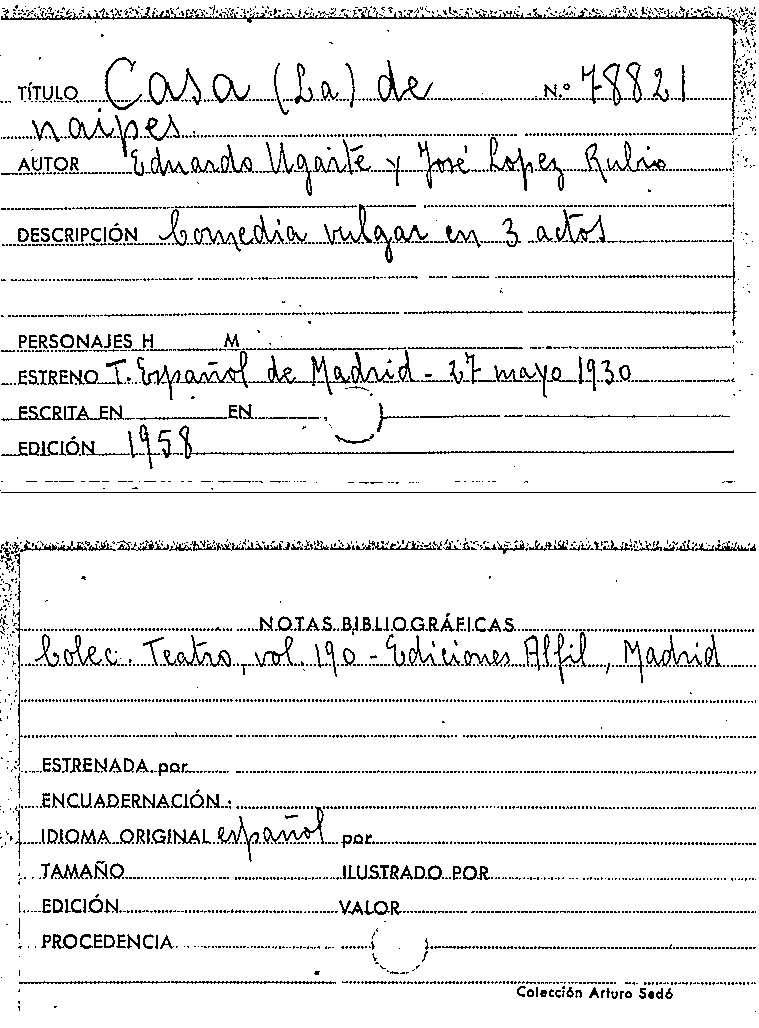 TÍTULO Casa (La) de N.º 78821
naipes.
AUTOR Eduardo Ugarte y José Lopez Rubio
DESCRIPCIÓN Comedia vulgar en 3 actos
PERSONAJES H M
ESTRENO T. Español de Madrid - 27 mayo 1930
ESCRITA EN EN
EDICIÓN 1958
NOTAS BIBLIOGRÁFICAS
Colec. Teatro, vol. 190 - Ediciones Alfil, Madrid
ESTRENADA por
ENCUADERNACIÓN
IDIOMA ORIGINAL español por
TAMAÑO ILUSTRADO POR
EDICIÓN VALOR
PROCEDENCIA
Colección Arturo Sedó